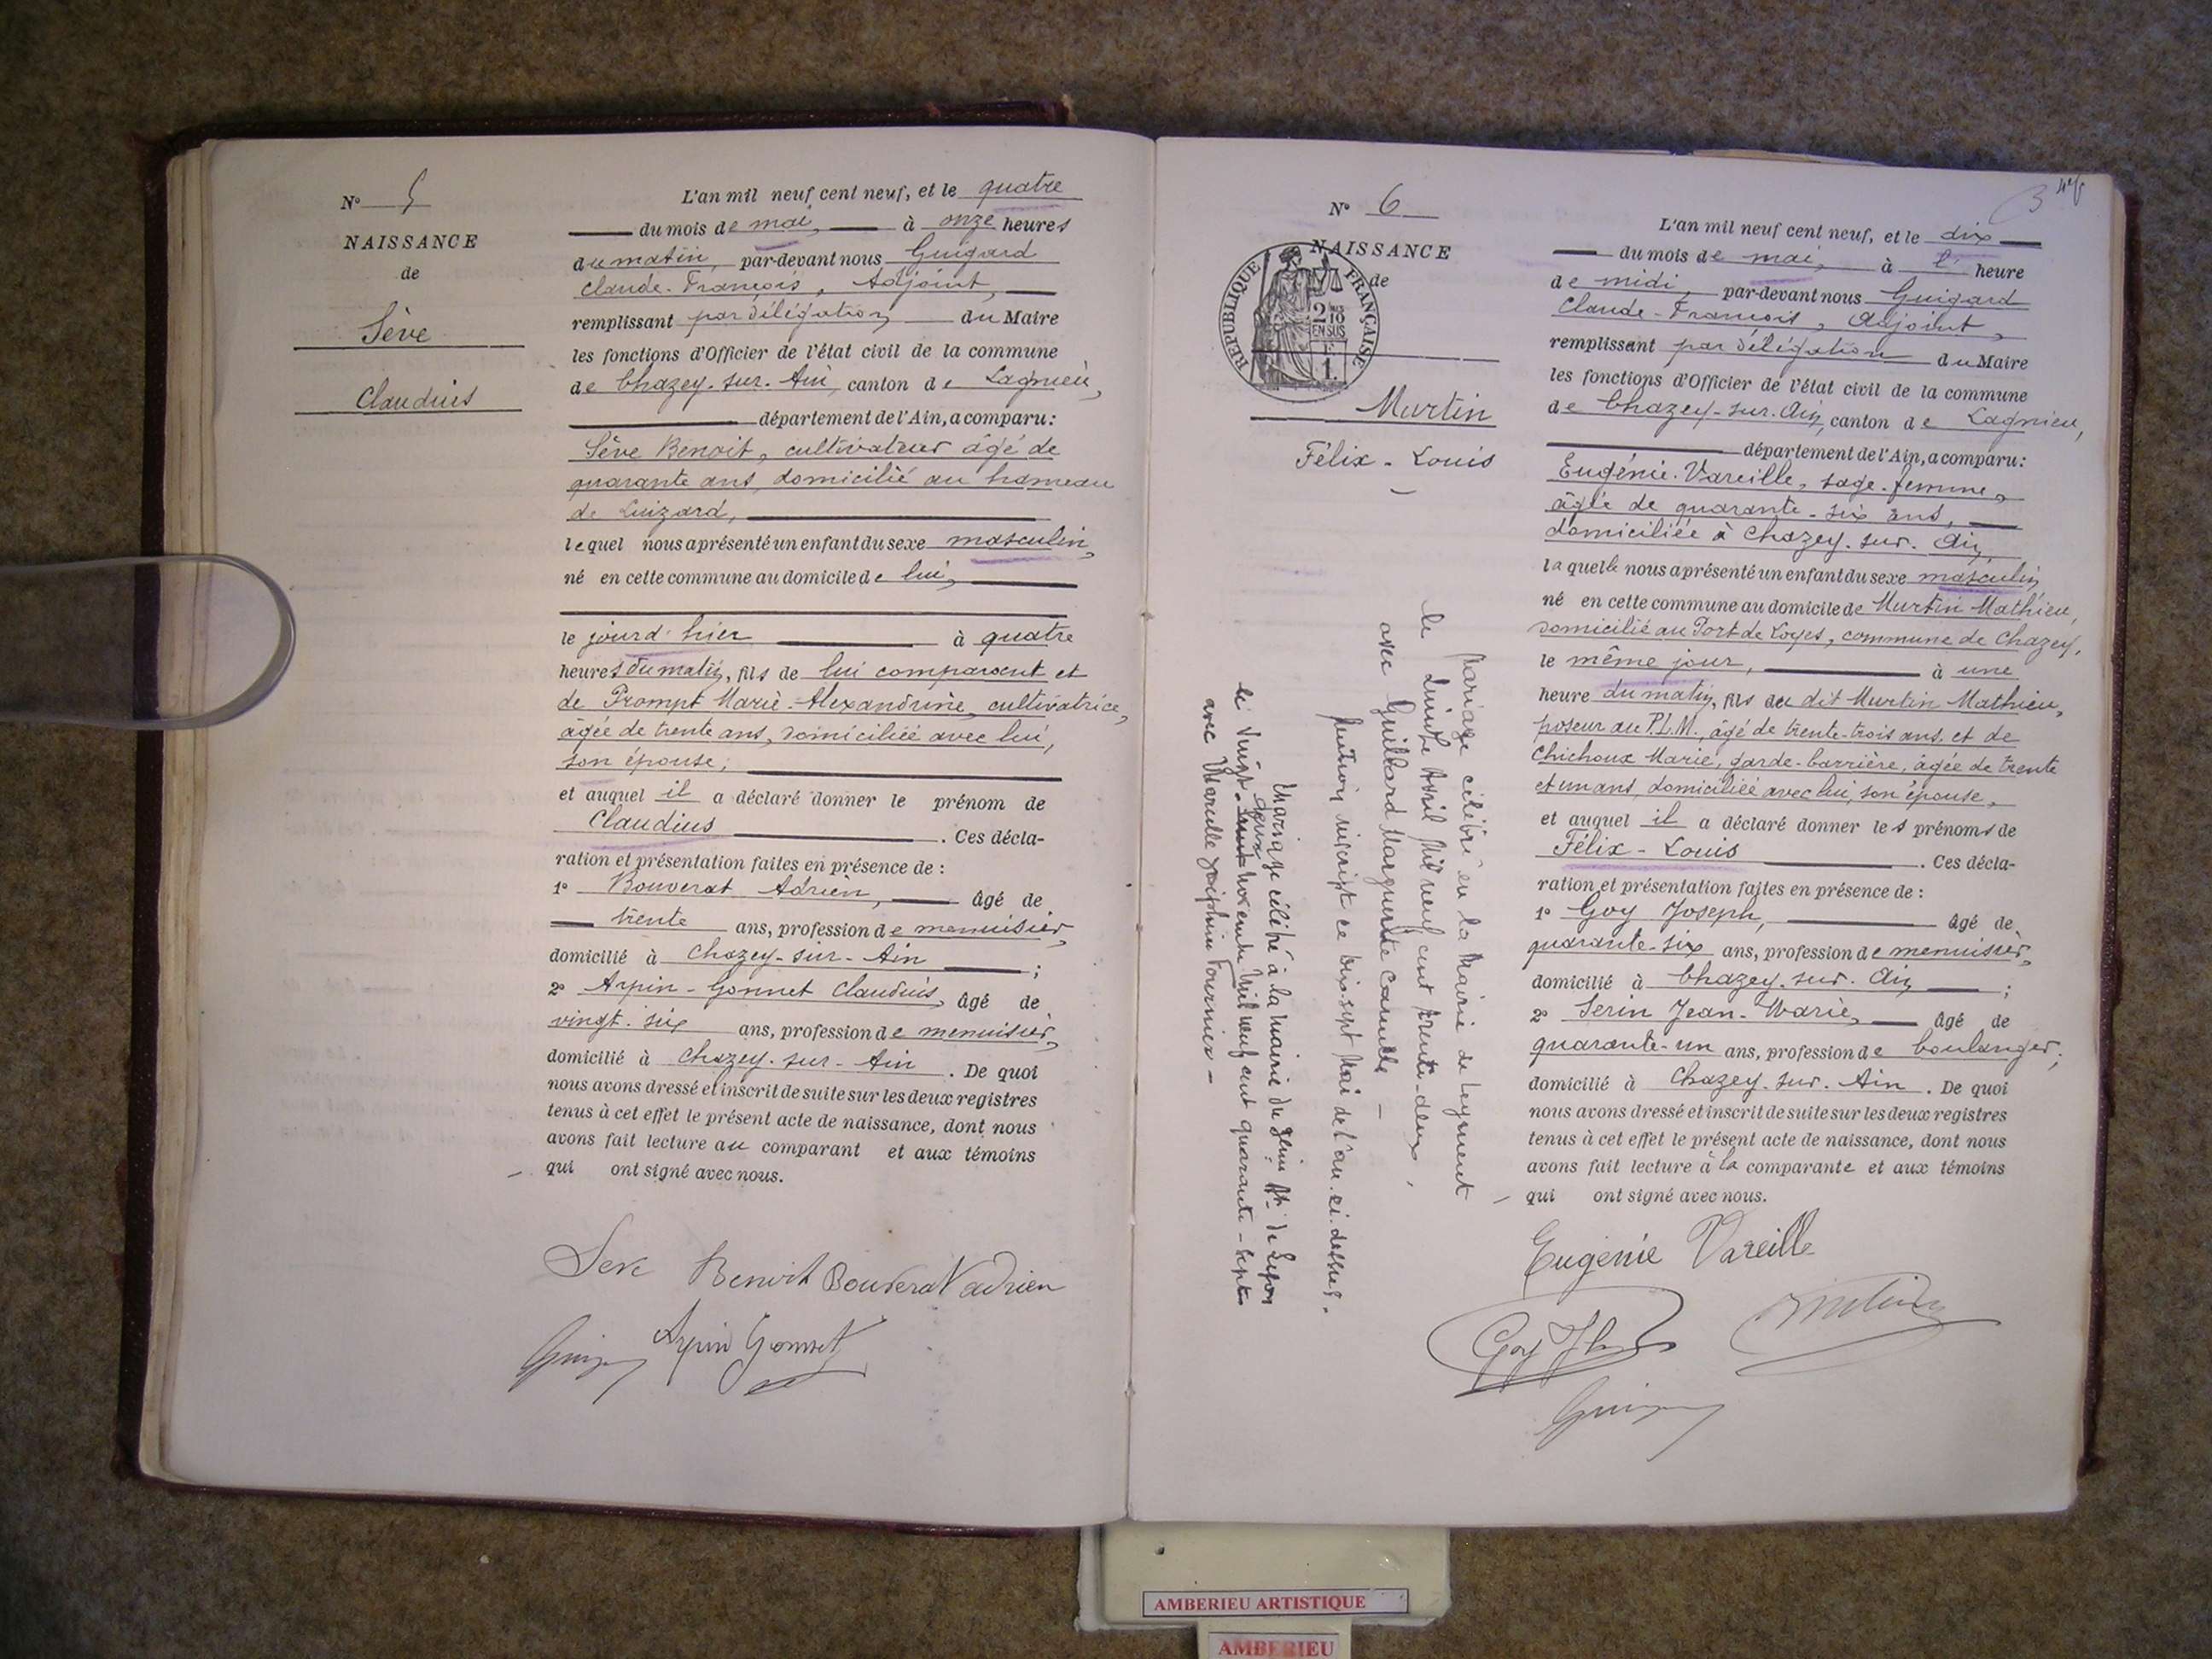 N° 5
NAISSANCE
de
Sève
Claudius
L'an mil neuf cent neuf, et le quatre
du mois de mai, à onze heures
du matin, par-devant nous Guigard
Claude-François, Adjoint,
remplissant par délégation du Maire
les fonctions d'Officier de l'état civil de la commune
de Chazey-sur-Ain, canton de Lagnieu,
département de l'Ain, a comparu:
Sève Benoit, cultivateur âgé de
quarante ans, domicilié au hameau
de Luizard,
lequel nous a présenté un enfant du sexe masculin,
né en cette commune au domicile de lui,
le jourd'hier à quatre
heures du matin, fils de lui comparant et
de Prompt Marie-Alexandrine, cultivatrice,
âgée de trente ans, domiciliée avec lui,
son épouse;
et auquel il a déclaré donner le prénom de
Claudius. Ces décla-
ration et présentation faites en présence de :
1° Bouverat Adrien, âgé de
trente ans, profession de menuisier,
domicilié à Chazey-sur-Ain ;
2° Arpin-Gonnet Claudius, âgé de
vingt-six ans, profession de menuisier,
domicilié à Chazey-sur-Ain. De quoi
nous avons dressé et inscrit de suite sur les deux registres
tenus à cet effet le présent acte de naissance, dont nous
avons fait lecture au comparant et aux témoins
qui ont signé avec nous.
Seve Benoit Bouverat adrien
Arpin Gonnet
N° 6
NAISSANCE
de
REPUBLIQUE FRANÇAISE
2/10
EN SUS
F
1.
Murtin
Félix-Louis
Mariage célébré en la Mairie de Leyment
le Avril Mil neuf cent trente-deux,
avec Guillard Marguerite Camille
Mention inscrite ce dix-sept Mai de l'an ci-dessus.
Mariage célébré à la mairie du 3eme Art de Lyon
le Vingt-deux novembre Mil neuf cent quarante-sept
avec Marcelle Joséphine Fournier
L'an mil neuf cent neuf, et le dix
du mois de mai, à l' heure
de midi, par-devant nous Guigard
Claude-François, Adjoint,
remplissant par délégation du Maire
les fonctions d'Officier de l'état civil de la commune
de Chazey-sur-Ain, canton de Lagnieu,
département de l'Ain, a comparu:
Eugénie Vareille, sage-femme,
âgée de quarante-six ans,
domiciliée à Chazey-sur-Ain,
laquelle nous a présenté un enfant du sexe masculin,
né en cette commune au domicile de Murtin Mathieu,
domicilié au Port de Loyes, commune de Chazey,
le même jour, à une
heure du matin, fils du dit Murtin Mathieu,
poseur au P.L.M., âgé de trente-trois ans, et de
Chichoux Marie, garde-barrière, âgée de trente
et un ans, domiciliée avec lui, son épouse,
et auquel il a déclaré donner les prénoms de
Félix-Louis. Ces décla-
ration et présentation faites en présence de :
1° Goy Joseph, âgé de
quarante-six ans, profession de menuisier,
domicilié à Chazey-sur-Ain ;
2° Serin Jean-Marie, âgé de
quarante-un ans, profession de boulanger,
domicilié à Chazey-sur-Ain. De quoi
nous avons dressé et inscrit de suite sur les deux registres
tenus à cet effet le présent acte de naissance, dont nous
avons fait lecture à la comparante et aux témoins
qui ont signé avec nous.
Eugénie Vareille
Goy Jh
AMBERIEU ARTISTIQUE
AMBERIEU